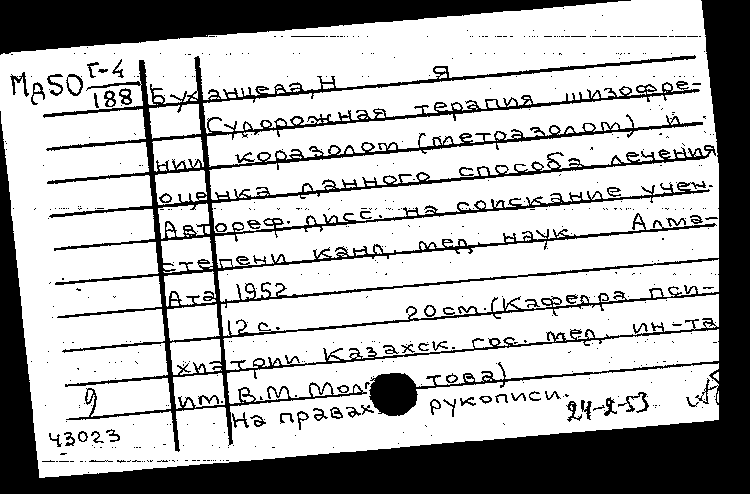 Ма50 Г-4
188
Буканцева, Н Я
Судорожная терапия шизофре-
нии коразолом (метразолом) и
оценка данного способа лечения
Автореф. дисс. на соискание учен.
степени канд. мед. наук. Алма-
Ата, 1952.
12 с. 20 см. (Кафедра пси-
хиатрии Казахск. гос. мед. ин-та
им. В.М. Молотова)
9
На правах рукописи.
24-2-53
43023